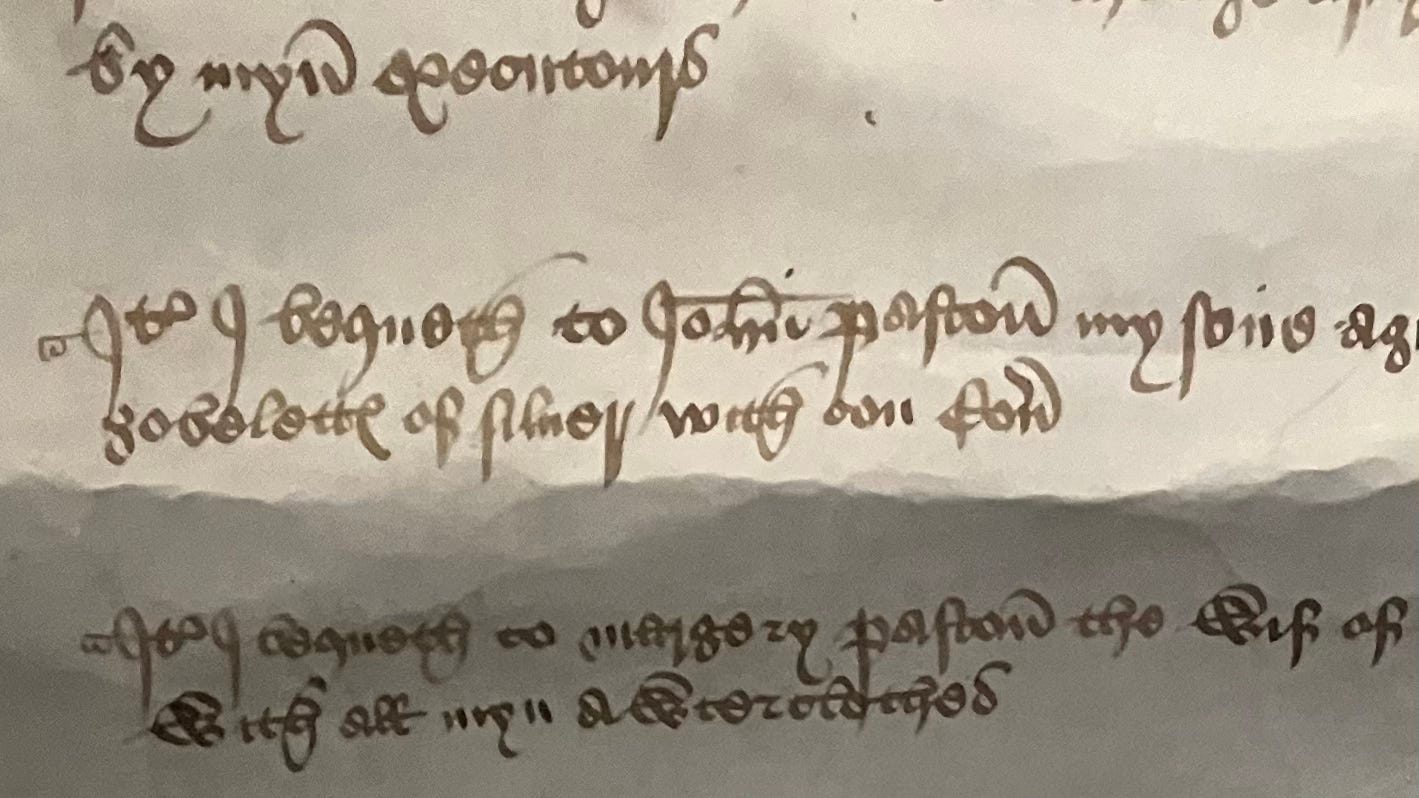 by myn executours
Itm I bequeth to John Paston my sone a g
gobelette of siluer with oon Cou
Itm I bequeth to Margery Paston the wif of
with all myn awterclothes